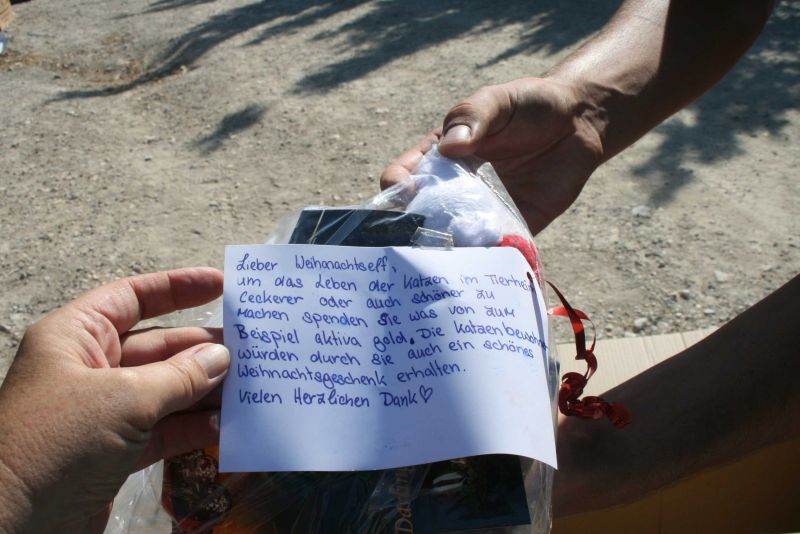 Lieber Weihnachtself,
um das Leben der Katzen im Tierheim
Leckerer oder auch schöner zu
machen spenden sie was von zum
Beispiel aktiva gold. Die Katzenbewohner
würden durch sie auch ein schönes
Weihnachtsgeschenk erhalten.
Vielen Herzlichen Dank♡